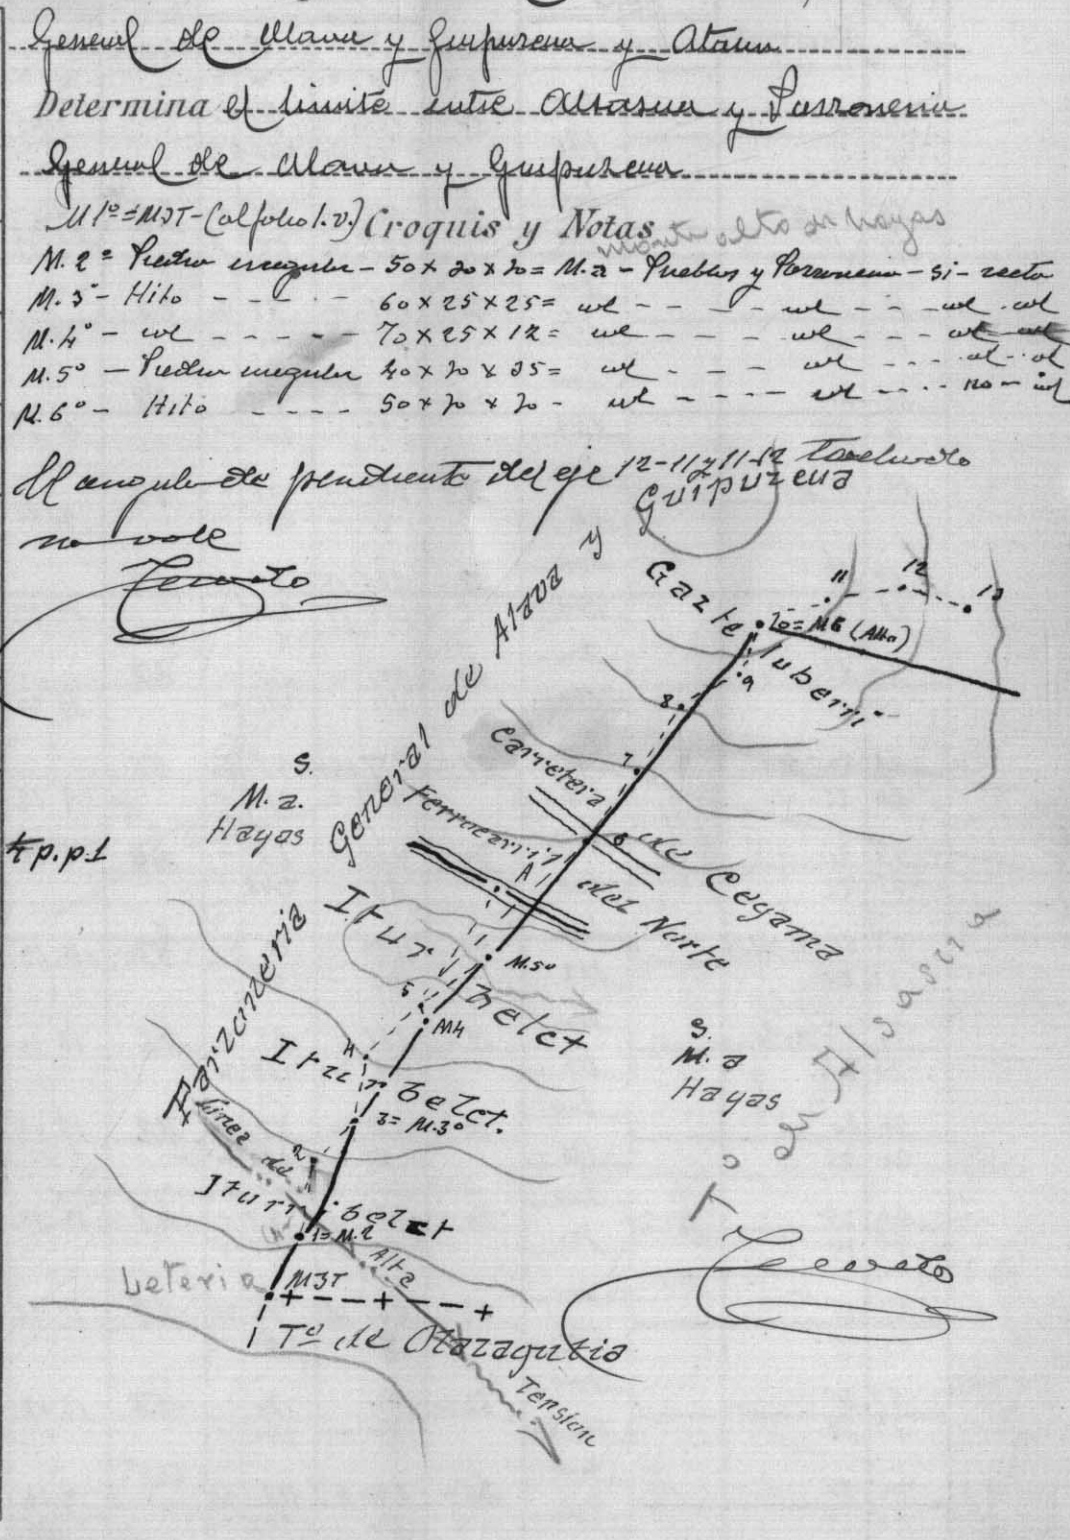 General de Alava y Guipuzcoa y Ataun
Determina el limite entre Alsasua y Parzoneria
General de Alava y Guipuzcoa
M 1º = M3T - (al folio 1. v.) Croquis y Notas
monte alto en hayas
M. 2º Piedra irregular - 50 x 20 x 20 = M.a - Pueblos y Parzoneria - si - recto
M. 3º - Hito - - - - 60 x 25 x 25 = id - - - id - - - id . id
M. 4º - id - - - - - 70 x 25 x 12 = id - - - id - - - id id
M. 5º - Piedra irregular 40 x 20 x 35 = id - - - id - - - id . id
M. 6º - Hito - - - - 50 x 20 x 20 - id - - - - id - - - no - id
El angulo de pendiente del eje 12-11 y 11-12 tachado
no vale
Guipuzcoa
Parzoneria General de Alava y
Gazteluberri
11 12 13
10 = M6 (Alto)
9
8
7
Carretera de Cegama
6
Ferrocarril del Norte
A
S.
M. a.
Hayas
4 p.p.1
Iturbelct
M.5º
5
M4
4
Iturbelct.
3 = M.3º
S.
M. a
Hayas
Tº de Alsasua
Linea de Alta Tension
2
Iturribelct
1 = M.2
Leteria
M3T
Tº de Olazagutia